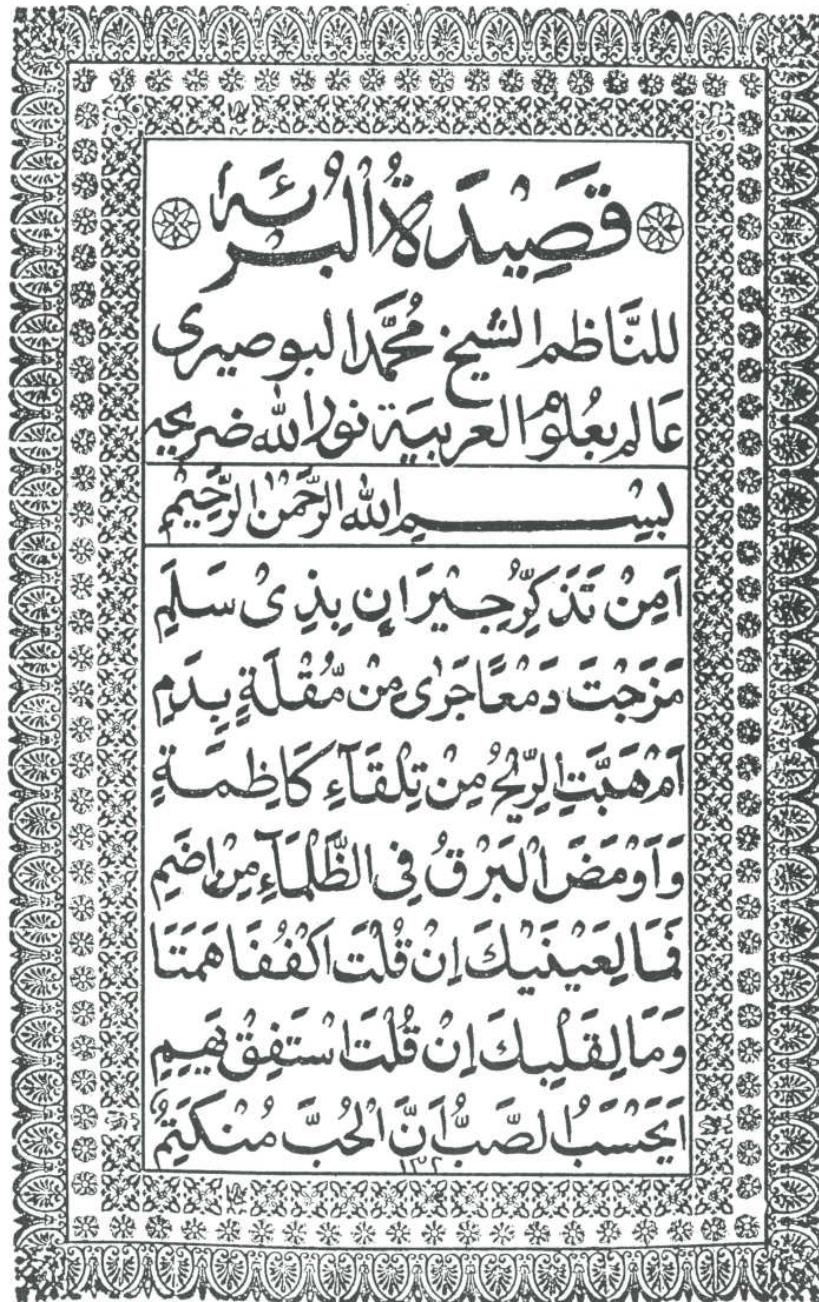 قَصِيدَةُ الْبُرْئَه
للنَّاظم الشيخ مُحَمَّد البوصيرى
عَالم بعُلُوم العربيَة نور الله ضريحه
بِسْمِ اللهِ الرَّحْمٰنِ الرَّحِيْمِ
اَمِنْ تَذَكُّرِ جِيْرَانٍ بِذِىْ سَلَمِ
مَزَجْتَ دَمْعًا جَرٰى مِنْ مُّقْلَةٍ بِدَمِ
اَمْ هَبَّتِ الرِّيْحُ مِنْ تِلْقَآءِ كَاظِمَةٍ
وَاَوْمَضَ الْبَرْقُ فِى الظَّلْمَآءِ مِنْ اِضَمِ
فَمَا لِعَيْنَيْكَ اِنْ قُلْتَ اكْفُفَا هَمَتَا
وَمَا لِقَلْبِكَ اِنْ قُلْتَ اسْتَفِقْ يَهِمِ
اَيَحْسَبُ الصَّبُّ اَنَّ الْحُبَّ مُنْكَتِمٌ